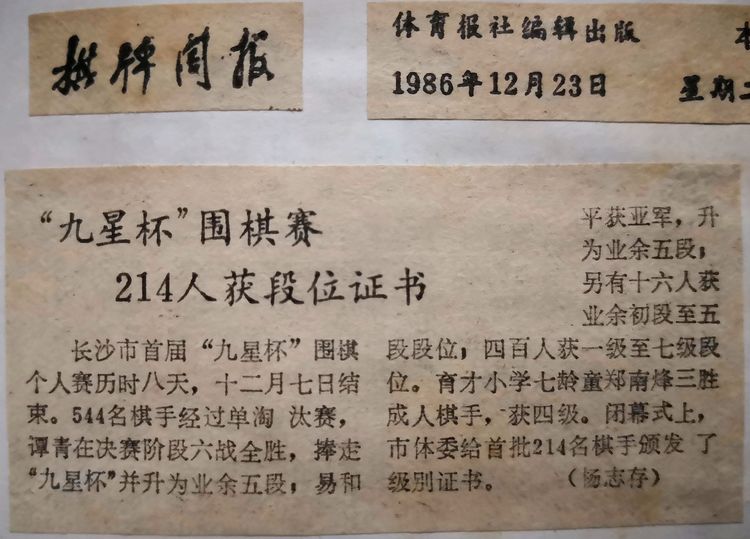 棋牌周报
体育报社编辑出版
1986年12月23日 星期二
“九星杯”围棋赛
214人获段位证书
长沙市首届“九星杯”围棋
个人赛历时八天，十二月七日结
束。544名棋手经过单淘 汰赛，
谭青在决赛阶段六战全胜，捧走
“九星杯”并升为业余五段；易和
平获亚军，升
为业余五段；
另有十六人获
业余初段至五
段段位，四百人获一级至七级段
位。育才小学七龄童郑南烽三胜
成人棋手，获四级。闭幕式上，
市体委给首批214名棋手颁发了
级别证书。 （杨志存）